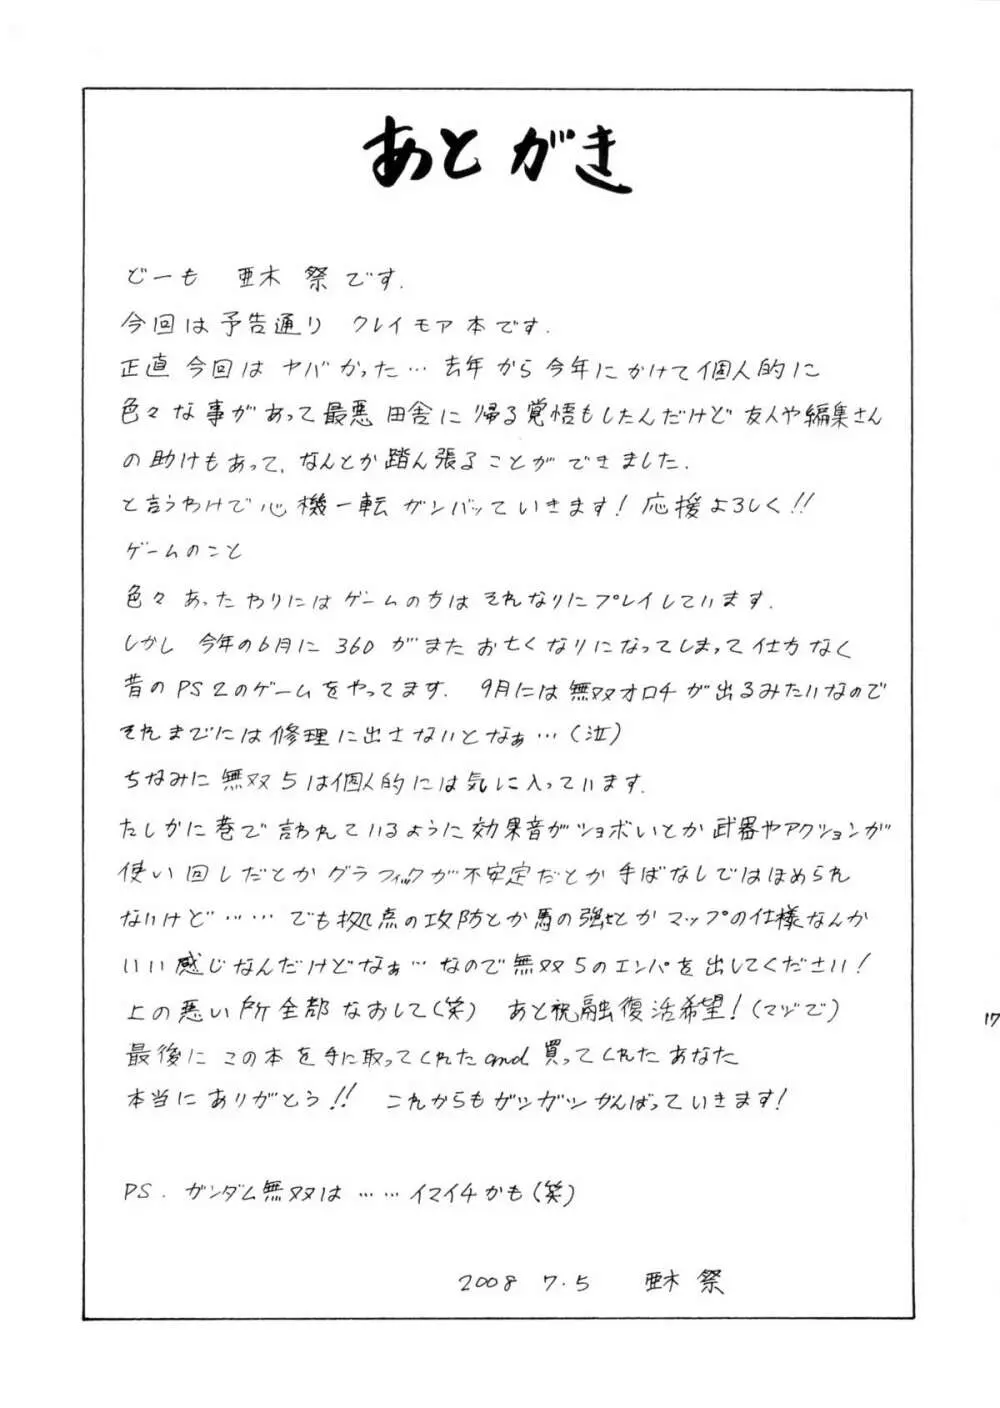 あとがき
どーも 亜木 祭です.
今回は予告通り クレイモア本です.
正直 今回は ヤバかった… 去年から今年にかけて個人的に
色々な事があって最悪 田舎に帰る覚悟もしたんだけど 友人や編集さん
の助けもあって、なんとか踏ん張ることができました.
と言うわけで心機一転ガンバッていきます! 応援よろしく!!
ゲームのこと
色々あったわりにはゲームの方はそれなりにプレイしています.
しかし 今年の6月に 360 がまたお亡くなりになってしまって仕方なく
昔のPS2のゲームをやってます. 9月には無双オロチが出るみたいなので
それまでには修理に出さないとなぁ…(泣)
ちなみに無双5は個人的には気に入っています.
たしかに巷で言われているように効果音がショボいとか武器やアクションが
使い回しだとかグラフィックが不安定だとか手ばなしではほめられ
ないけど…… でも拠点の攻防とか馬の強さとかマップの仕様なんか
いい感じなんだけどなぁ… なので無双5のエンパを出してください!
上の悪い所全部なおして(笑) あと祝融復活希望!(マヂで)
最後に この本を手に取ってくれた and 買ってくれた あなた
本当にありがとう!! これからもガシガシがんばっていきます!
PS. ガンダム無双は……イマイチかも(笑)
2008 7.5 亜木 祭
17